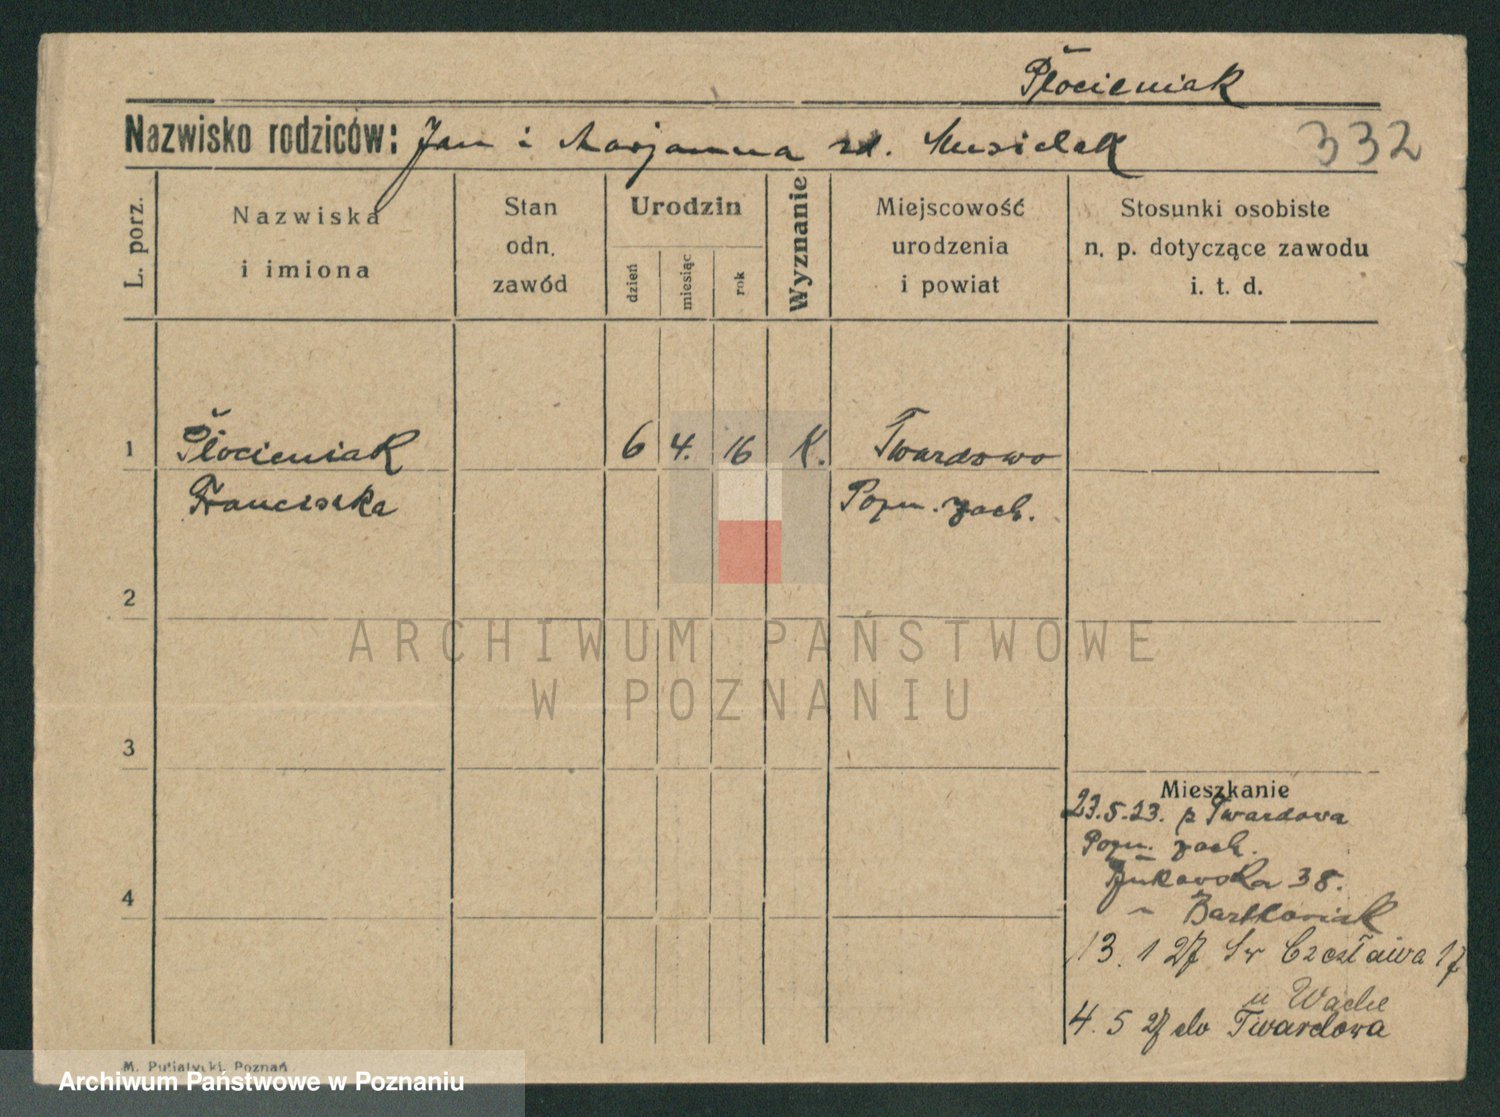 Płocieniak
Nazwisko rodziców: Jan i Marjanna zd. Musielak 332
L. porz.
Nazwiska
i imiona
Stan
odn.
zawód
Urodzin
dzień
miesiąc
rok
Wyznanie
Miejscowość
urodzenia
i powiat
Stosunki osobiste
n. p. dotyczące zawodu
i. t. d.
1 Płocieniak 6 4. 16 K. Twardowo
Franciszka zach.
2
ARCHIWUM PAŃSTWOWE
W POZNANIU
3
Mieszkanie
23.5.23. z Twardowa
zach.
4
Żukowska 38.
" Bartkowiak
13. 1 27 Sw Czesława 17
u Wache
4. 5 27 do Twardowa
M. Putiatycki, Poznań
Archiwum Państwowe w Poznaniu